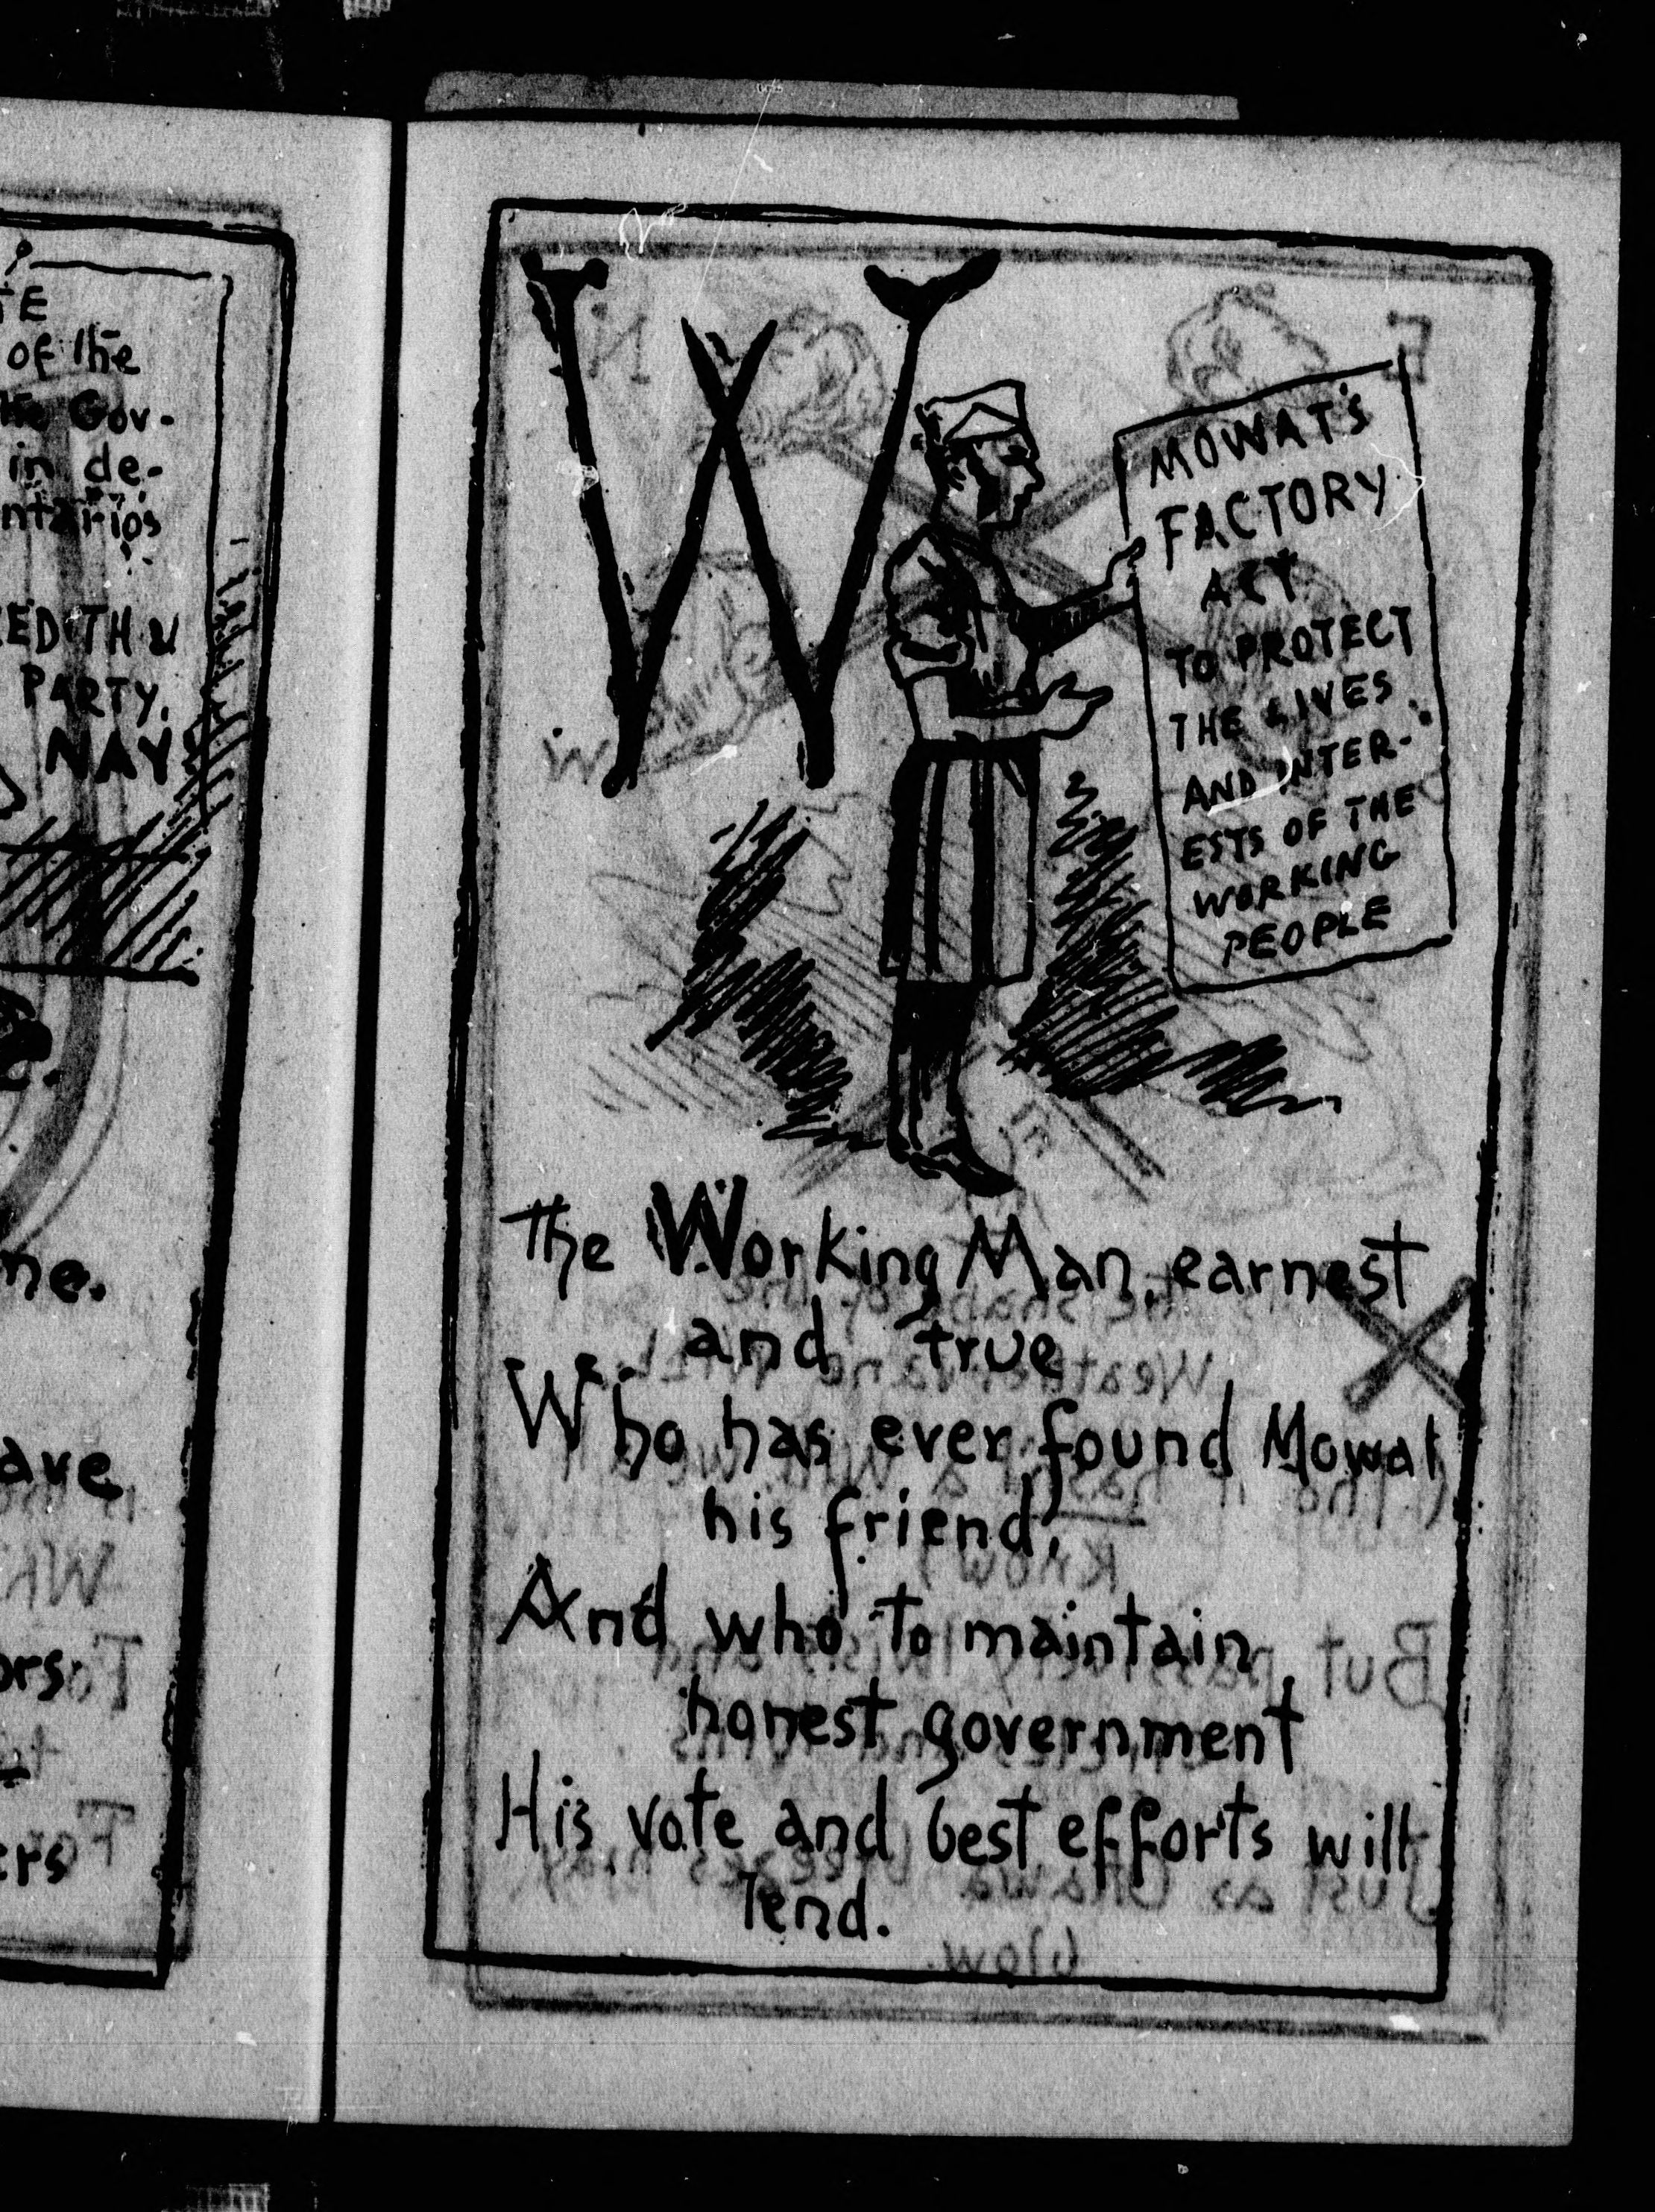 TE
of the
the Gov-
in de-
ntario's
EDITH &
PARTY.
NAY
e.
ne.
ave
ors
ers
W
MOWAT'S
FACTORY
ACT
TO PROTECT
THE LIVES
AND INTER-
ESTS OF THE
WORKING
PEOPLE
The Working Man, earnest
and true
Who has ever found Mowat
his friend,
And who to maintain
honest government
His vote and best efforts will
lend.